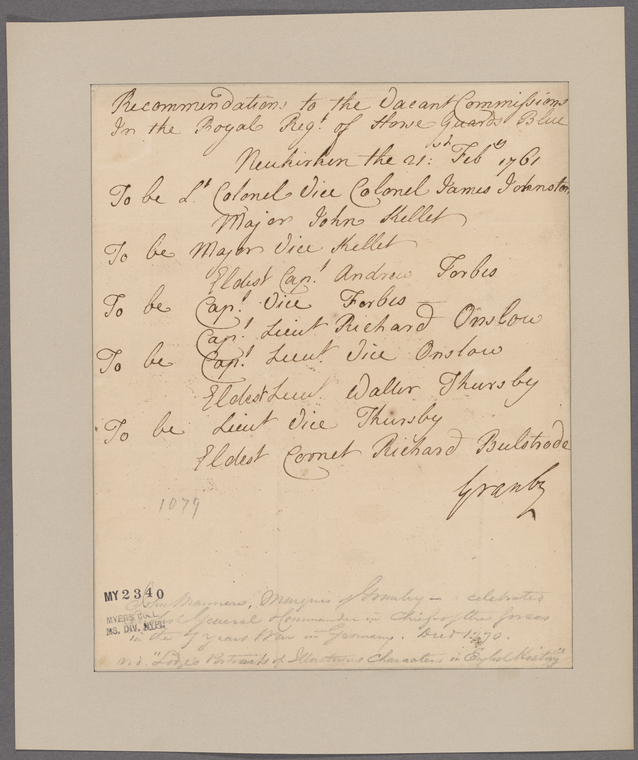 Recommendations to the Vacant Commissions
In the Royal Regt. of Horse Guards Blue
Neukirken the 21st: Feby 1761
To be Lt Colonel Vice Colonel James Johnston
Major John Kellet
To be Major Vice Kellet
Eldest Capt. Andrew Forbes
To be Capt. Vice Forbes
Capt. Lieut Richard Onslow
To be Capt. Lieut Vice Onslow
Eldest Lieut. Walter Thursby
To be Lieut Vice Thursby
Eldest Cornet Richard Bulstrode
Granby
1079
John Manners, Marquis of Granby — celebrated
General Commander in Chief of the forces
in the 7 years War in Germany. Died 1770.
vid. "Lodge's Portraits of Illustrious Characters in English History"
MY 2340
MYERS COLL.
MS. DIV. NYPL